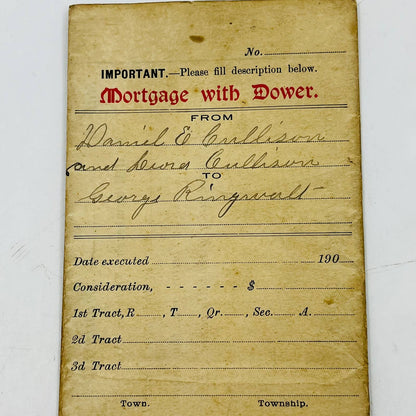 No.
IMPORTANT.—Please fill description below.
Mortgage with Dower.
FROM
Daniel E Cullison
and Cullison
TO
George Ringwalt
Date executed 190
Consideration, - - - - - - $
1st Tract, R , T , Qr. , Sec. A.
2d Tract
3d Tract
Town. Township.